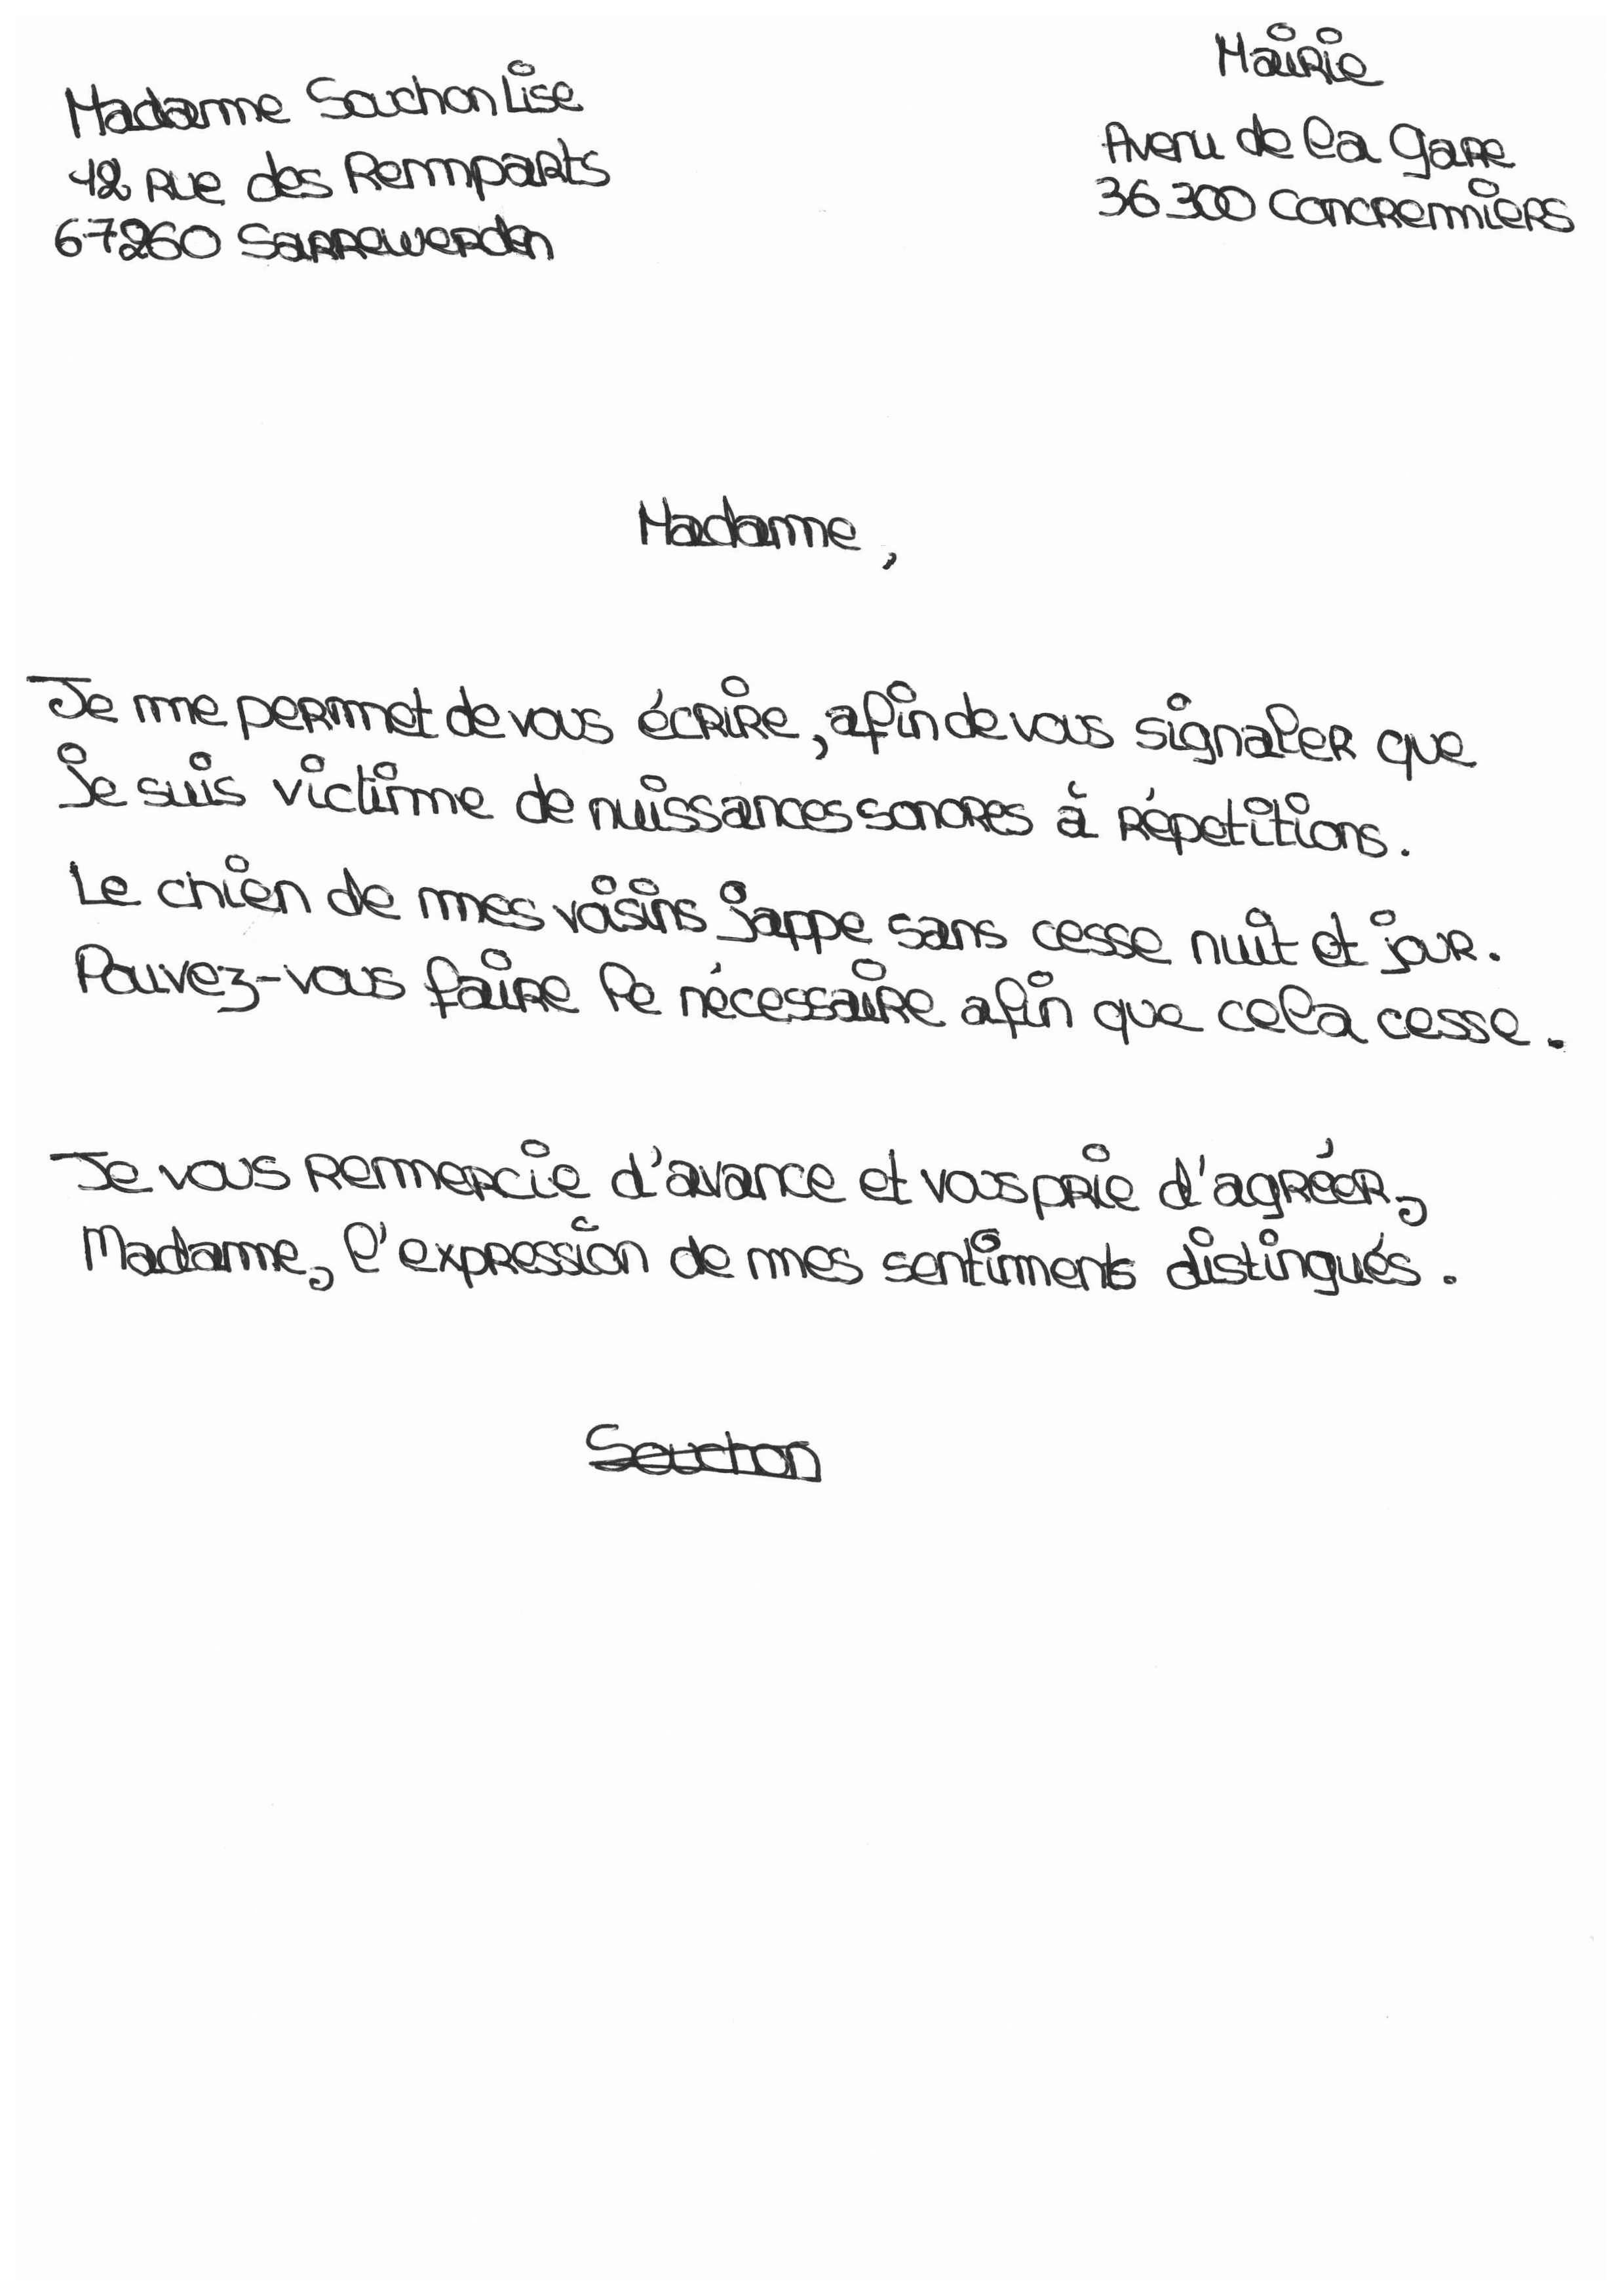 Madame Souchon Lise
42 Rue des Remparts
67260 Sarrewerden
Mairie
Avenu de la gare
36300 Concremiers
Madame,
Je me permet de vous écrire, afin de vous signaler que
je suis victime de nuissances sonores à répetitions.
Le chien de mes voisins jappe sans cesse nuit et jour.
Pouvez-vous faire le nécessaire afin que cela cesse.
Je vous remercie d'avance et vous prie d'agréer,
Madame, l'expression de mes sentiments distingués.
Souchon